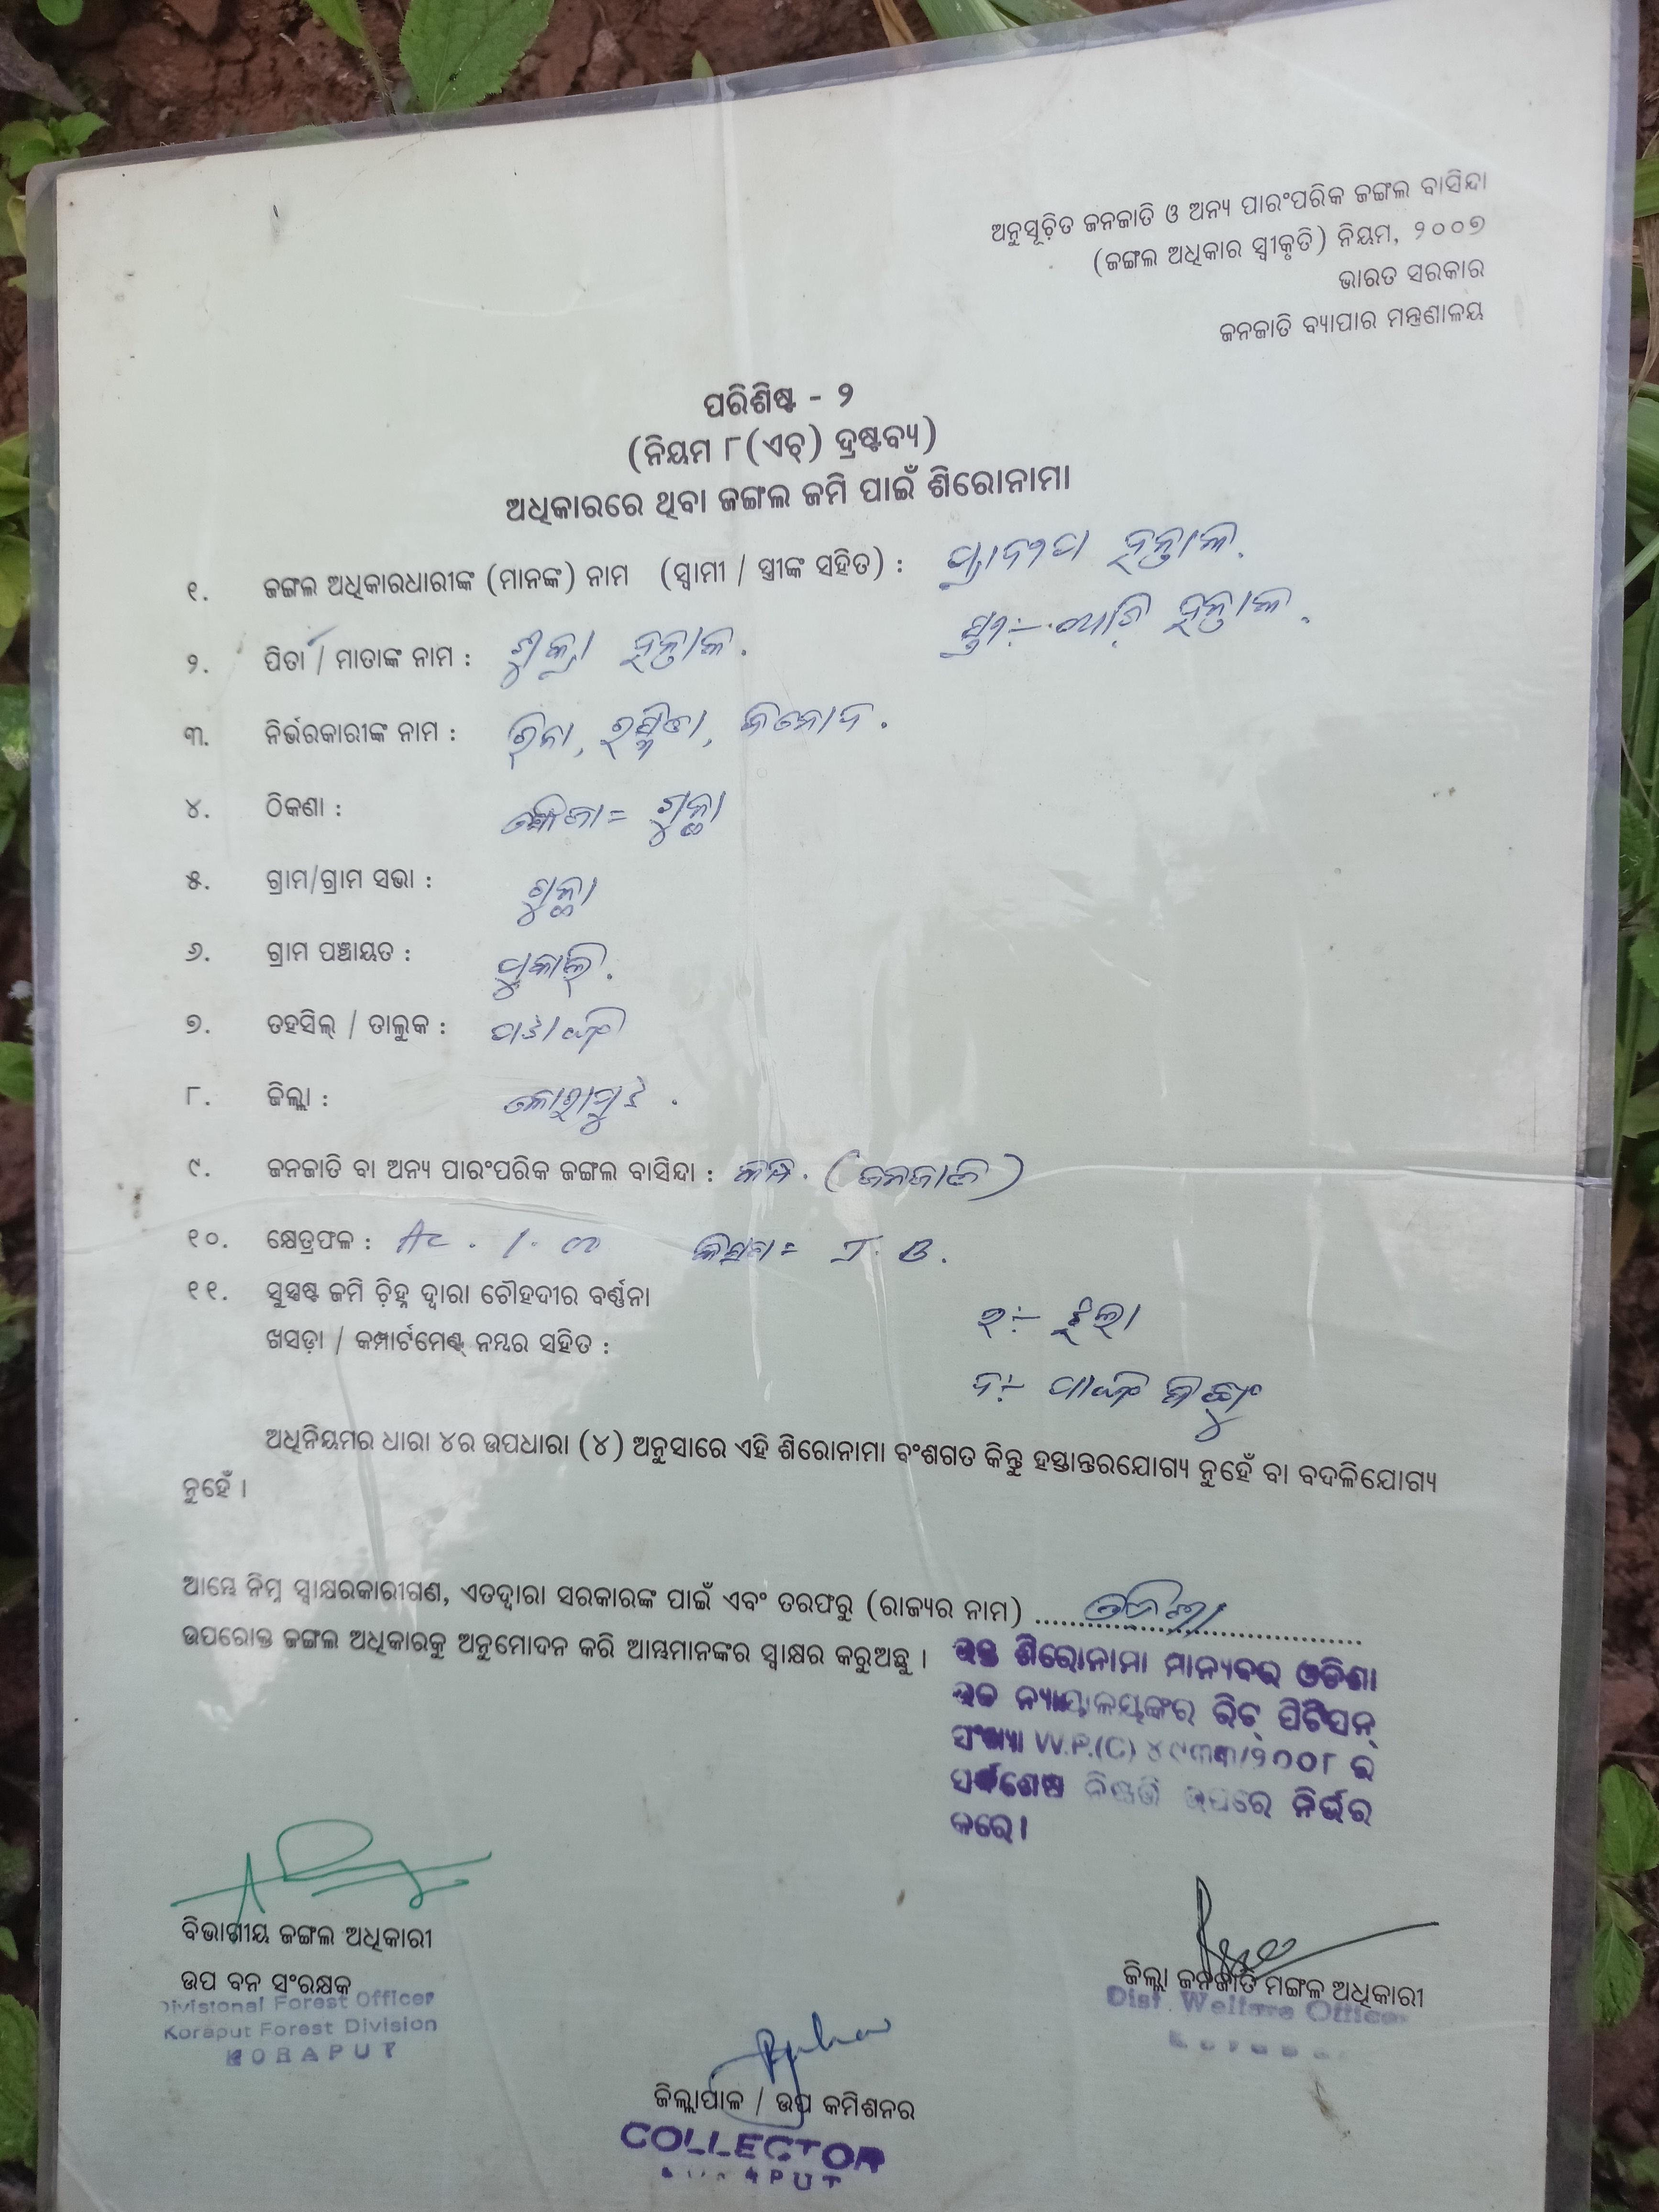 ଅନୁସୂଚିତ ଜନଜାତି ଓ ଅନ୍ୟ ପାରଂପରିକ ଜଙ୍ଗଲ ବାସିନ୍ଦା
(ଜଙ୍ଗଲ ଅଧିକାର ସ୍ୱୀକୃତି) ନିୟମ, ୨୦୦୭
ଭାରତ ସରକାର
ଜନଜାତି ବ୍ୟାପାର ମନ୍ତ୍ରଣାଳୟ
ପରିଶିଷ୍ଟ - ୨
(ନିୟମ ୮(ଏଚ୍) ଦ୍ରଷ୍ଟବ୍ୟ)
ଅଧିକାରରେ ଥିବା ଜଙ୍ଗଲ ଜମି ପାଇଁ ଶିରୋନାମା
୧. ଜଙ୍ଗଲ ଅଧିକାରଧାରୀଙ୍କ (ମାନଙ୍କ) ନାମ (ସ୍ୱାମୀ / ସ୍ତ୍ରୀଙ୍କ ସହିତ) : ହନ୍ତାଳ.
ସ୍ତ୍ରୀ:- ହନ୍ତାଳ.
୨. ପିତା / ମାତାଙ୍କ ନାମ : ଶୁକ୍ରା ହନ୍ତାଳ.
୩. ନିର୍ଭରକାରୀଙ୍କ ନାମ : ରିନା, ରସ୍ମିତା, ବିନୋଦ.
୪. ଠିକଣା :
୫. ଗ୍ରାମ/ଗ୍ରାମ ସଭା :
୬. ଗ୍ରାମ ପଞ୍ଚାୟତ : ପୁକାଲି.
୭. ତହସିଲ୍ / ତାଲୁକ : ପଟାଙ୍ଗି
୮. ଜିଲ୍ଲା : କୋରାପୁଟ.
୯. ଜନଜାତି ବା ଅନ୍ୟ ପାରଂପରିକ ଜଙ୍ଗଲ ବାସିନ୍ଦା : (ଜନଜାତି)
୧୦. କ୍ଷେତ୍ରଫଳ : Ac. 1.00 କିସମ= J.B.
୧୧. ସୁସ୍ପଷ୍ଟ ଜମି ଚିହ୍ନ ଦ୍ୱାରା ଚୌହଦୀର ବର୍ଣ୍ଣନା
ଖସଡ଼ା / କମ୍ପାର୍ଟମେଣ୍ଟ୍ ନମ୍ବର ସହିତ :
ଅଧିନିୟମର ଧାରା ୪ର ଉପଧାରା (୪) ଅନୁସାରେ ଏହି ଶିରୋନାମା ବଂଶଗତ କିନ୍ତୁ ହସ୍ତାନ୍ତରଯୋଗ୍ୟ ନୁହେଁ ବା ବଦଳିଯୋଗ୍ୟ
ନୁହେଁ ।
ଆମ୍ଭେ ନିମ୍ନ ସ୍ୱାକ୍ଷରକାରୀଗଣ, ଏତଦ୍ୱାରା ସରକାରଙ୍କ ପାଇଁ ଏବଂ ତରଫରୁ (ରାଜ୍ୟର ନାମ) ଓଡିଶା
ଉପରୋକ୍ତ ଜଙ୍ଗଲ ଅଧିକାରକୁ ଅନୁମୋଦନ କରି ଆମ୍ଭମାନଙ୍କର ସ୍ୱାକ୍ଷର କରୁଅଛୁ ।
ଉକ୍ତ ଶିରୋନାମା ମାନ୍ୟବର ଓଡିଶା
ଉଚ୍ଚ ନ୍ୟାୟାଳୟଙ୍କର ରିଟ୍ ପିଟିସନ୍
ସଂଖ୍ୟା W.P.(C) ୪୯୩୩/୨୦୦୮ ର
ସର୍ବଶେଷ ନିଷ୍ପତ୍ତି ଉପରେ ନିର୍ଭର
କରେ।
ବିଭାଗୀୟ ଜଙ୍ଗଲ ଅଧିକାରୀ
ଉପ ବନ ସଂରକ୍ଷକ
Divisional Forest Officer
Koraput Forest Division
KORAPUT
ଜିଲ୍ଲା ଜନଜାତି ମଙ୍ଗଳ ଅଧିକାରୀ
Dist. Welfare Officer
ଜିଲ୍ଲାପାଳ / ଉପ କମିଶନର
COLLECTOR
KORAPUT